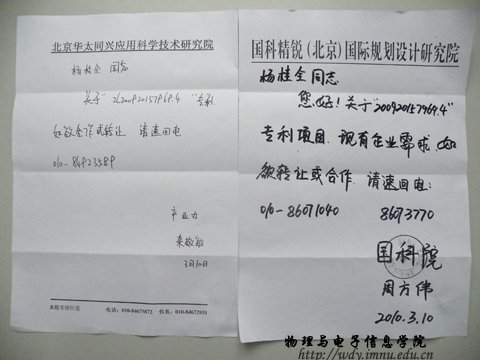 北京华太同兴应用科学技术研究院
杨桂全 同志
关于"200920157969.4" 专利
合作或转让 请速回电
010-84923589
产业办
3月10日
本院专用信笺 电话：010-84675872 传真：010-84672931
国科精锐（北京）国际规划设计研究院
杨桂全同志
您好！关于"200920157969.4"
专利项目，现有企业需求，如
欲转让或合作，请速回电：
010-86071040 86073770
国科院
周方伟
2010.3.10
物理与电子信息学院
http://wdy.imnu.edu.cn